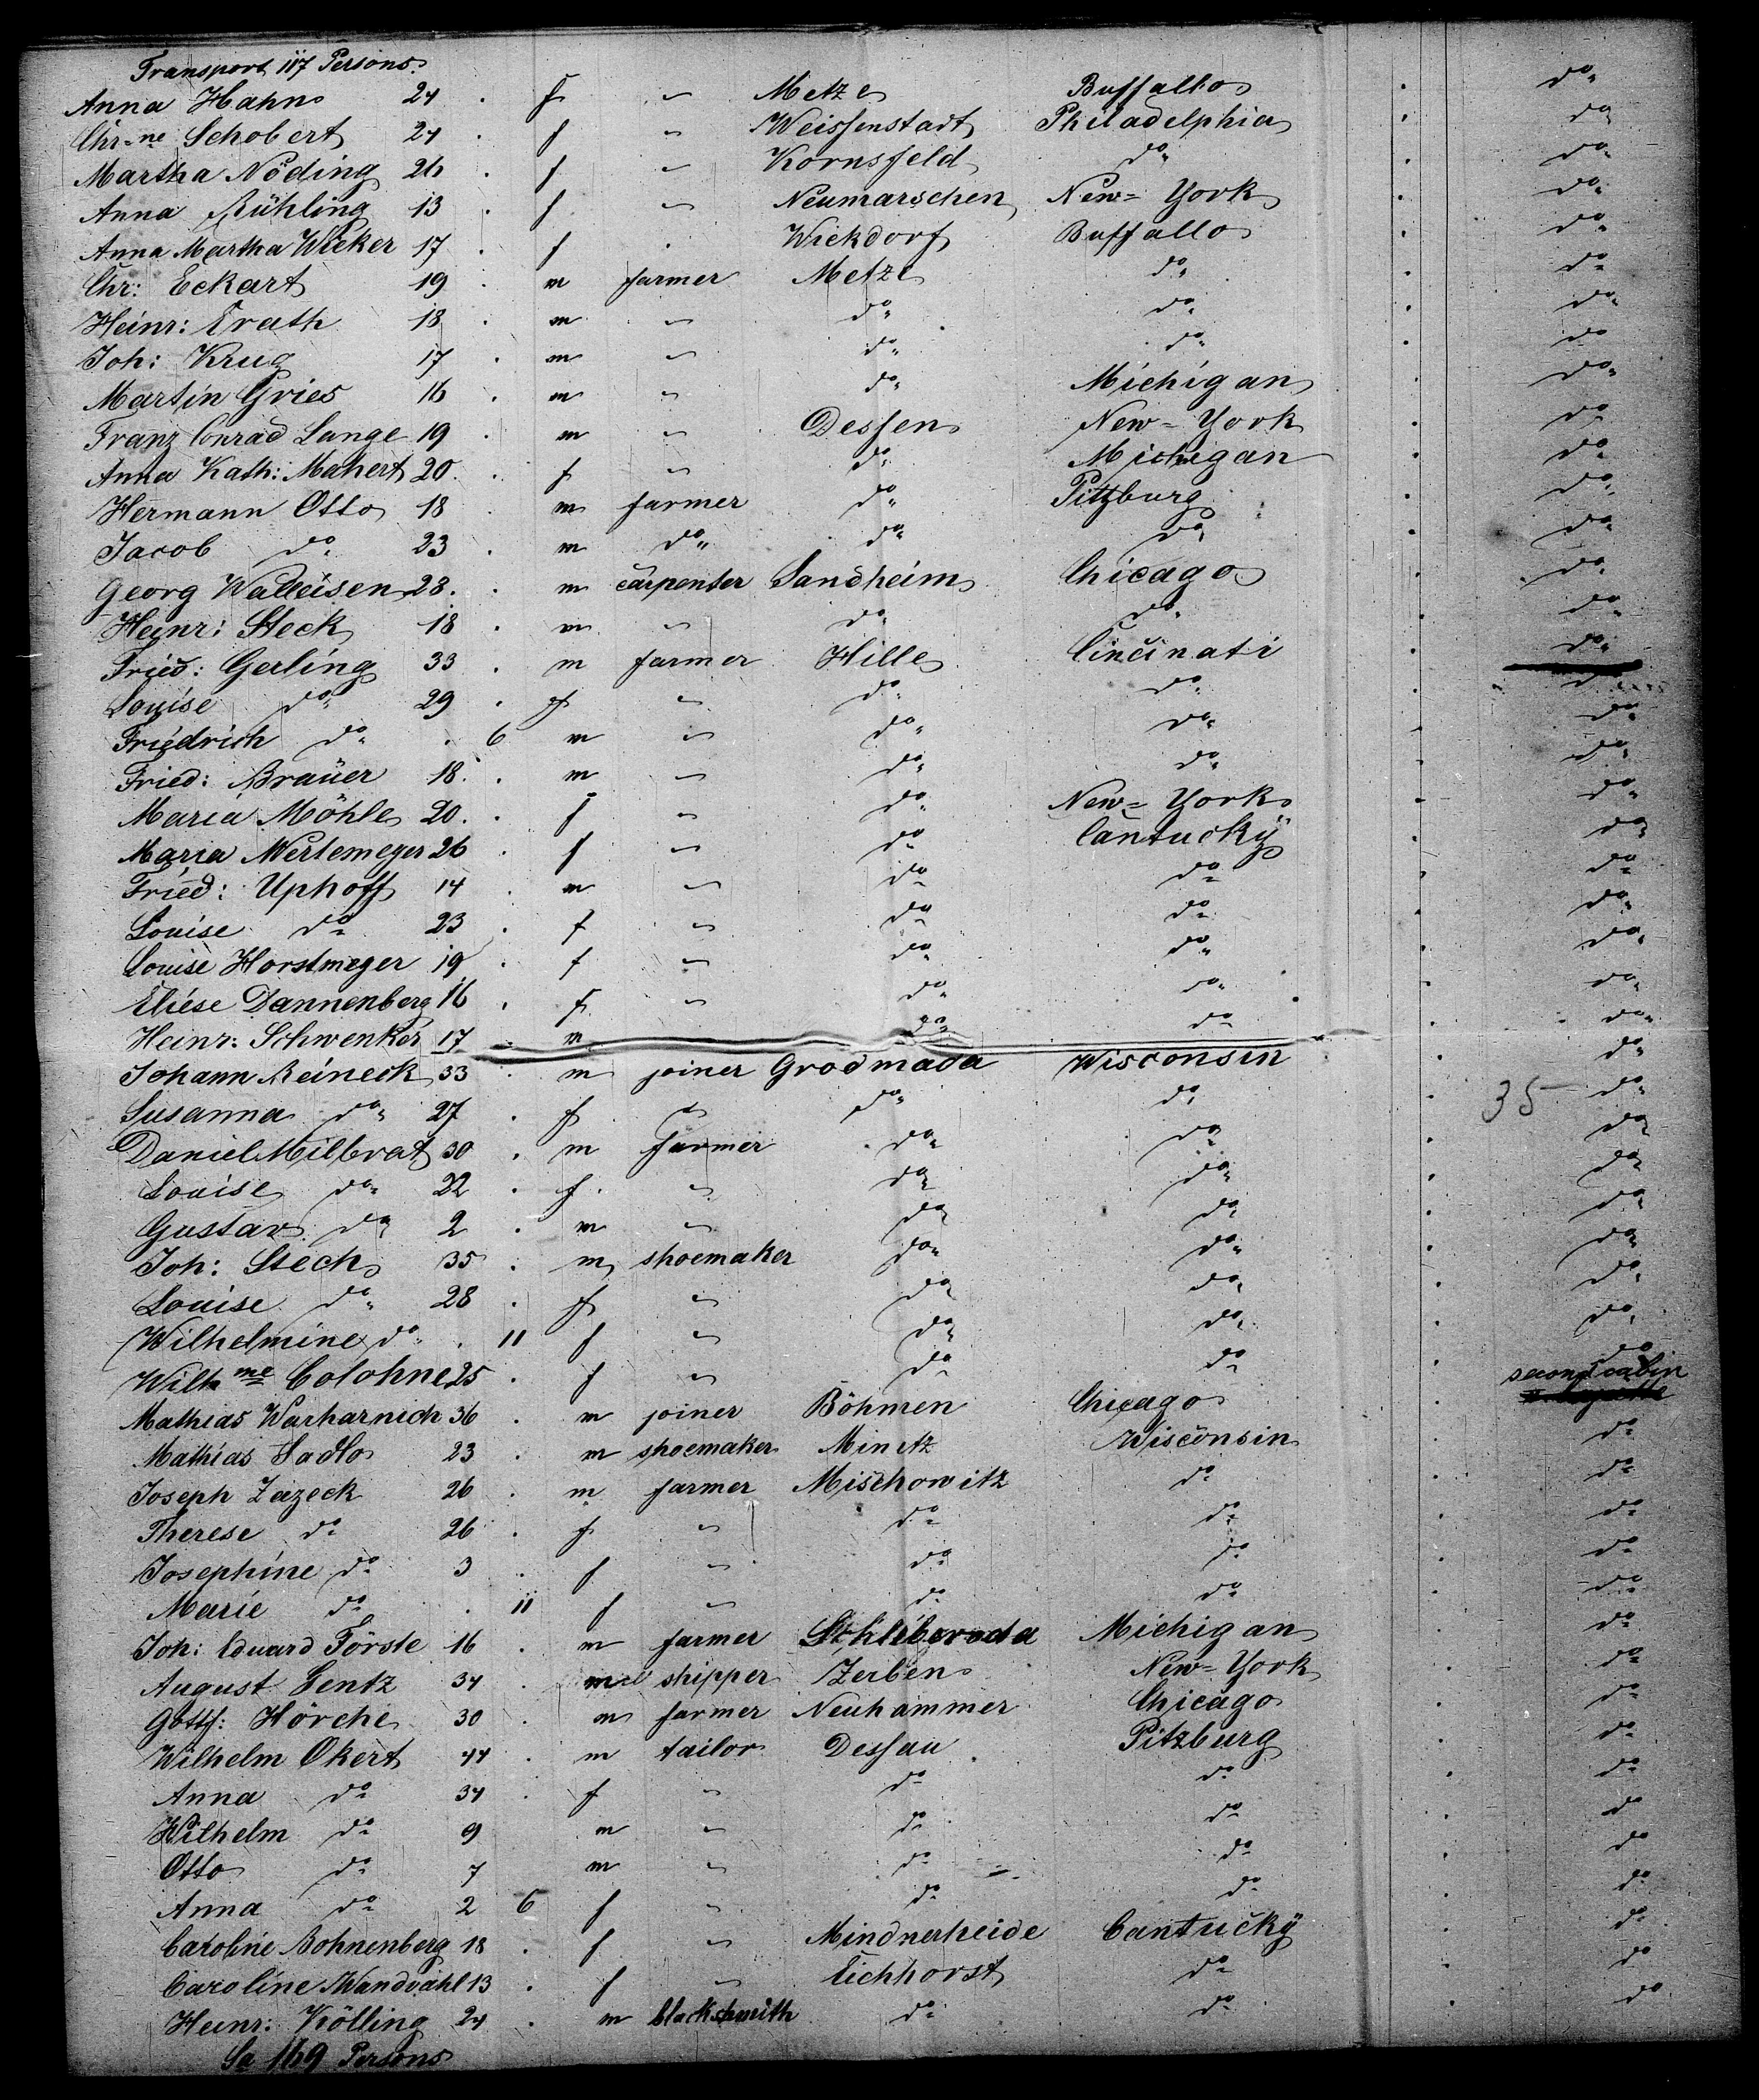 Transport 117 Persons.
Anna Hahn 24 . f " Metze Buffallo . do
Chr-ne Schobert 24 . f " Weissenstadt Philadelphia . do
Martha Nöding 26 . f " Kornsfeld do . do
Anna Rühling 13 . f " Neumarschen New-York . do
Anna Martha Wicker 17 . f . Wickdorf Buffallo . do
Chr: Eckart 19 . m farmer Metze do . do
Heinr: Erath 18 . m " do do . do
Joh: Krug 17 . m " do do . do
Martin Gries 16 . m " do Michigan . do
Franz Conrad Lange 19 . m " Dessen New-York . do
Anna Kath: Mahert 20 . f " do Michigan . do
Hermann Otto 18 . m farmer do Pitzburg . do
Jacob do 23 . m do do do . do
Georg Walleisen 28 . m carpenter Sandheim Chicago . do
Heinr: Steck 18 . m " do do . do
Fried: Gerling 33 . m farmer Hille Cincinati . do
Louise do 29 . f " do do . do
Friedrich do . 6 m " do do . do
Fried: Braüer 18 . m " do do . do
Maria Möhle 20 . f " do New-York . do
Maria Mertemeyer 26 . f " do Cantucky . do
Fried: Uphoff 14 . m " do do . do
Louise do 23 . f " do do . do
Louise Horstmeyer 19 . f " do do . do
Eliese Dannenberg 16 . f " do do . do
Heinr: Schwenker 17 . m do do . do
Johann Reineck 33 . m joiner Grodmada Wisconsin . do
Susanna do 27 . f " do do . 35 do
Daniel Milbrat 30 . m farmer do do . do
Louise do 22 . f " do do . do
Gustav do 2 . m " do do . do
Joh: Stech 35 . m shoemaker do do . do
Louise do 28 . f " do do . do
Wilhelmine do . 11 f " do do . do
Wilhme Colohne 25 . f " do do . do
Mathias Warharnich 36 . m joiner Böhmen Chicago . second cabin
Mathias Sadlo 23 . m shoemaker Minetz Wisconsin . do
Joseph Zazeck 26 . m farmer Mischowitz do . do
Therese do 26 . f " do do . do
Josephine do 3 . f " do do . do
Marie do . 11 f " do do . do
Joh: Eduard Förste 16 . m farmer Michigan . do
August Gentz 34 . m shipper Zerben New-York . do
Gottf: Hörche 30 . m farmer Neuhammer Chicago . do
Wilhelm Okert 44 . m tailor Dessau Pitzburg . do
Anna do 34 . f " do do . do
Wilhelm do 9 m " do do . do
Otto do 7 m " do do . do
Anna do 2 6 f " do do . do
Caroline Bohnenberg 18 . f " Mindnerheide Cantucky . do
Caroline Wandvahl 13 . f " Eichhorst do . do
Heinr: Kölling 24 . m blacksmith do do . do
Sa 169 Persons